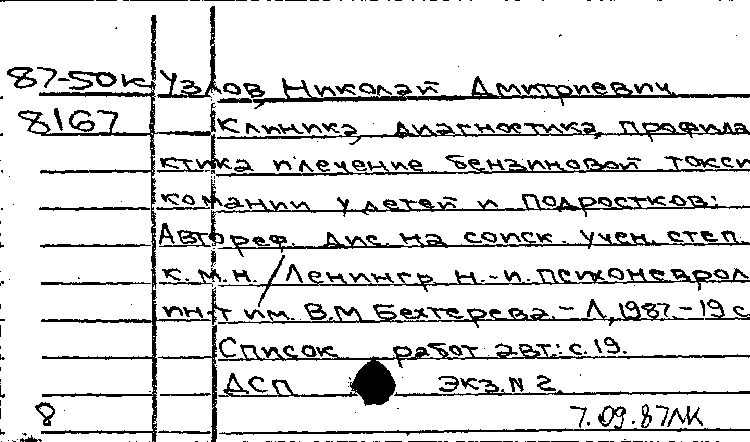 87-50к Узлов, Николай Дмитриевич
8167 Клиника, диагностика, профила
ктика и лечение бензиновой токси
комании у детей и подростков:
Автореф. дис. на соиск. учен. степ.
к.м.н. / Ленингр. н.-и. психоневрол.
ин-т им. В.М Бехтерева. - Л, 1987. - 19 с
Список работ авт.: с. 19.
ДСП ЭКЗ. N 2.
8 7.09.87ЛК